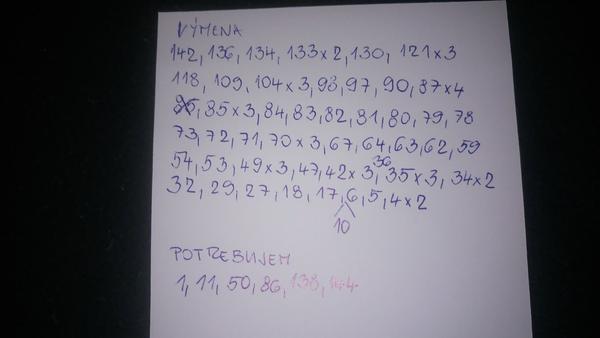 VÝMENA
142, 136, 134, 133x2, 130, 121x3
118, 109, 104x3, 98, 97, 90, 87x4
85x3, 84, 83, 82, 81, 80, 79, 78
73, 72, 71, 70x3, 67, 64, 63, 62, 59
54, 53, 49x3, 47, 42x3, 36, 35x3, 34x2
32, 29, 27, 18, 17, 6, 5, 4x2
10
POTREBUJEM
1, 11, 50, 86, 138,